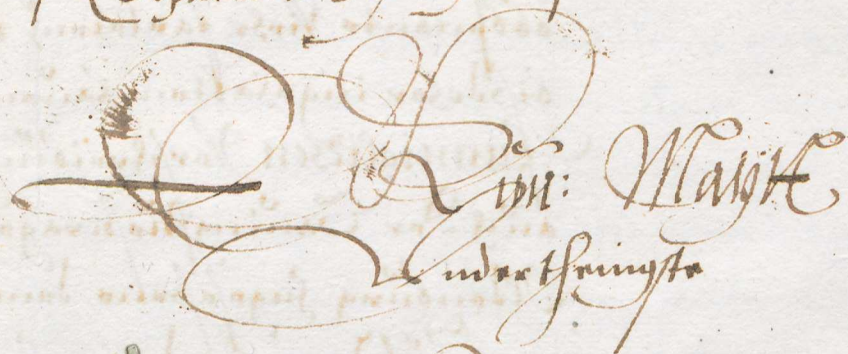 E Kön: Maÿtt
Underthenigste